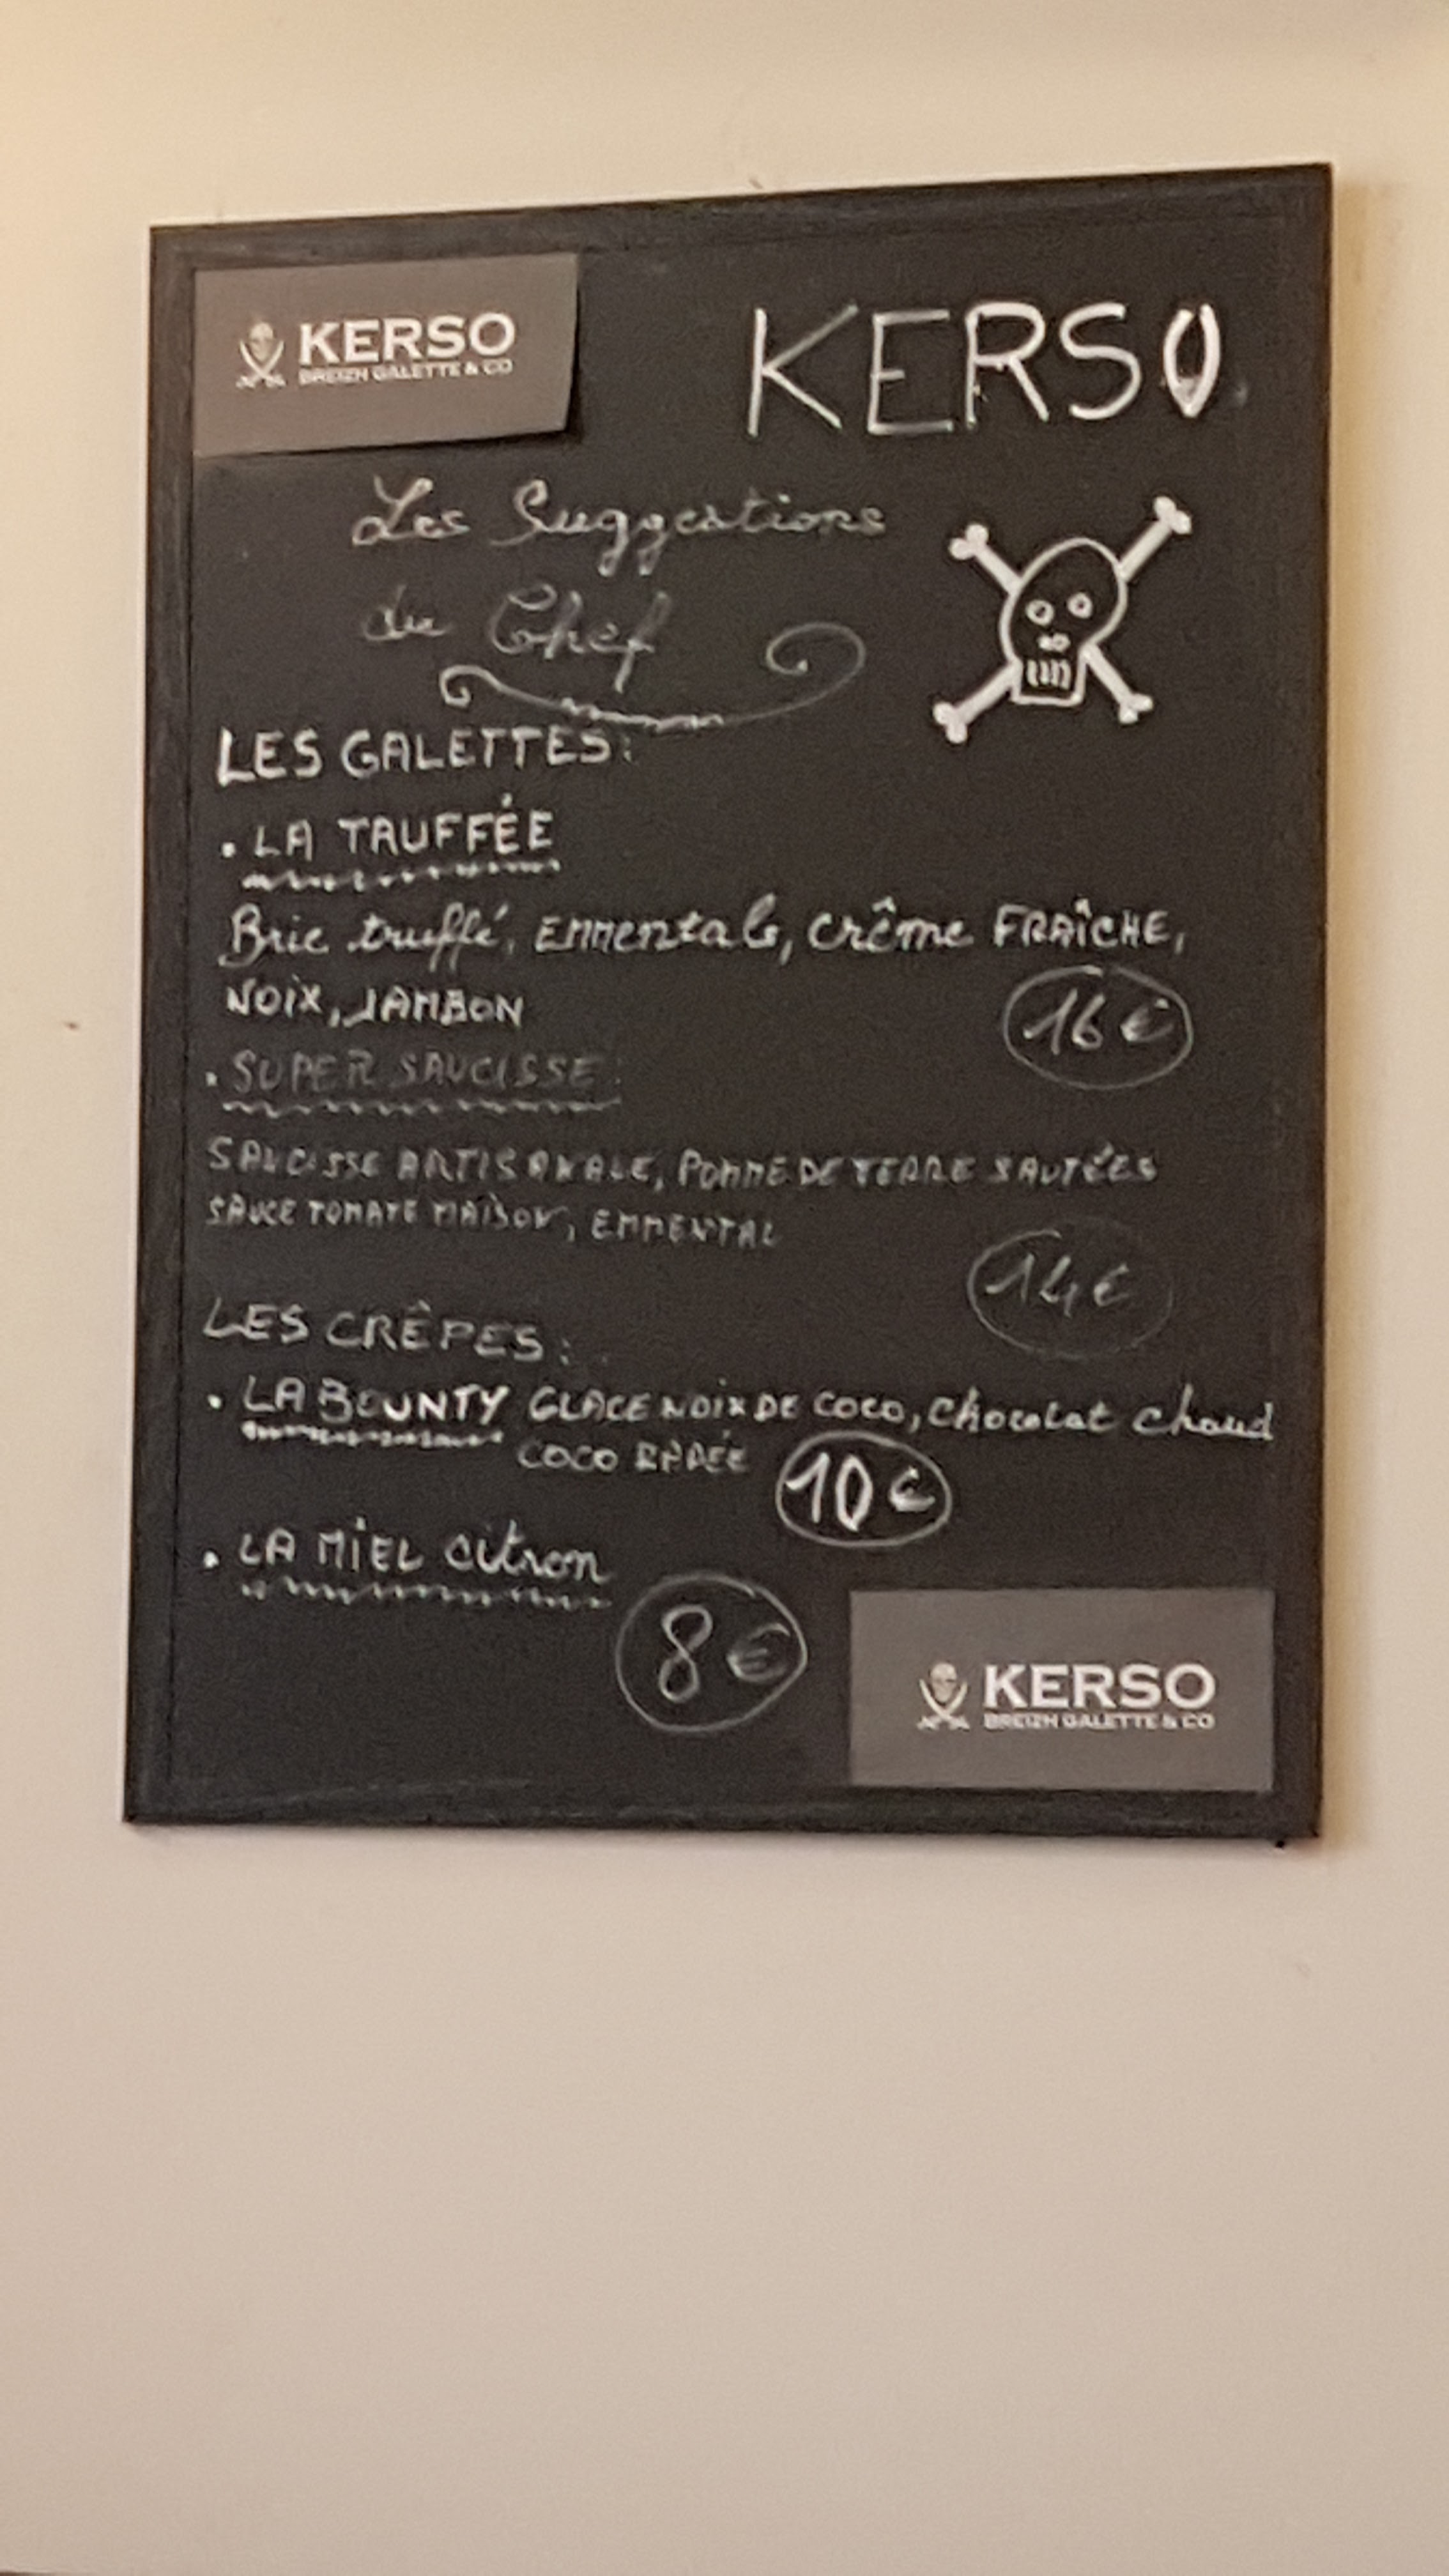 KERSO
BREIZH GALETTE & CO
KERSO
Les Suggestions
du Chef
LES GALETTES:
. LA TRUFFÉE
Brie truffé, EMMENTAL, crême FRAÎCHE,
NOIX, JAMBON
16€
. SUPER SAUCISSE:
SAUCISSE ARTISANALE, POMME DE TERRE SAUTÉES
SAUCE TOMATE MAISON, EMMENTAL
14€
LES CRÊPES:
. LA BOUNTY GLACE NOIX DE COCO, chocolat chaud
COCO RÂPÉE
10€
. LA MIEL citron
8€
KERSO
BREIZH GALETTE & CO